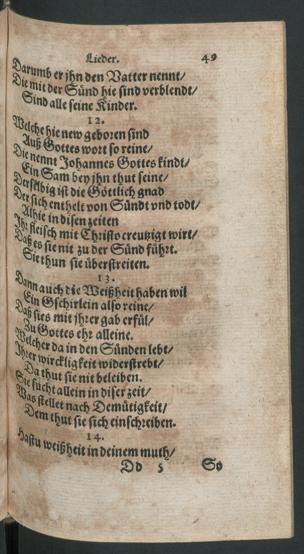 Lieder. 49
Darumb er jhn den Vatter nennt/
Die mit der Sünd hie sind verblendt/
Sind alle seine Kinder.
12.
Welche hie new geboren sind
Auß Gottes wort so reine/
Die nennt Johannes Gottes kindt/
Ein Sam bey jhn thut seine/
Derselbig ist die Göttlich gnad
Der sich enthelt von Sündt vnd todt/
Alhie in disen zeiten
Ihr fleisch mit Christo creutzigt wirt/
Daß es sie nit zu der Sünd führt.
Sie thun sie überstreiten.
13.
Dann auch die Weißheit haben wil
Ein Gschirlein also reine/
Daß sies mit jhrer gab erfül/
Zu Gottes ehr alleine.
Welcher da in den Sünden lebt/
Ihrer wirckligkeit widerstrebt/
Da thut sie nit beleiben.
Sie sucht allein in diser zeit/
Was stellet nach Demütigkeit/
Dem thut sie sich einschreiben.
14.
Hastu weißheit in deinem muth/
Dd 5 So